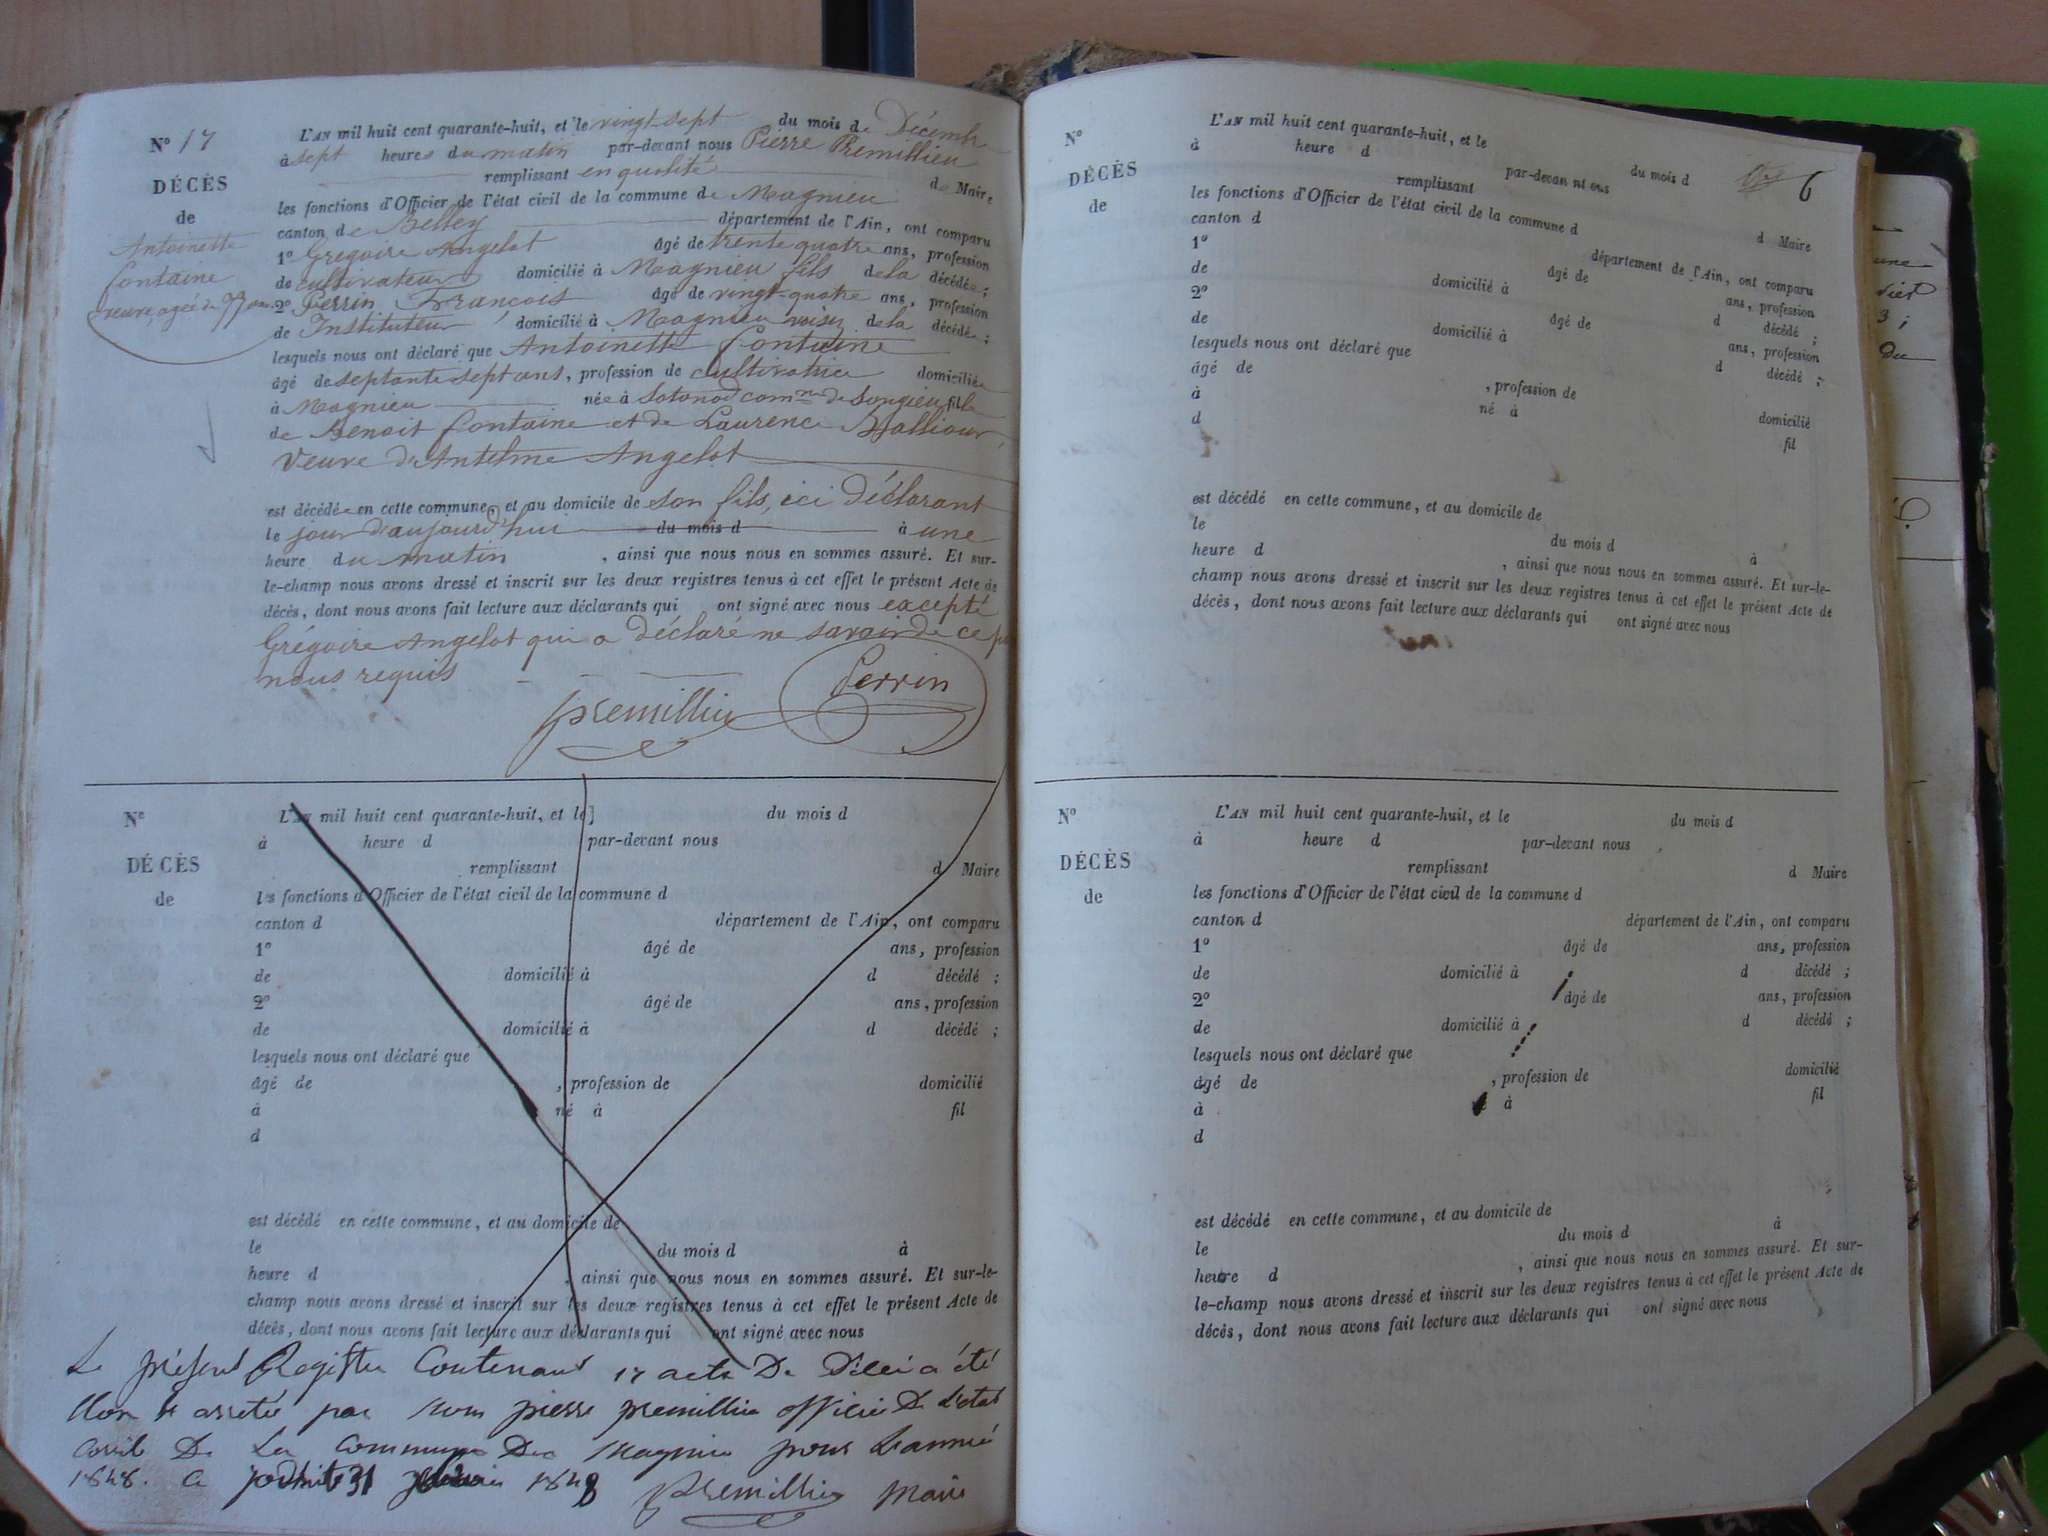 N° 17
DÉCÈS
de
Antoinette
Fontaine
veuve, agée de 77 ans
L'AN mil huit cent quarante-huit, et le vingt-sept du mois de Décembre
à sept heures du matin par-devant nous Pierre Premillieu
remplissant en qualité de Maire
les fonctions d'Officier de l'état civil de la commune de Magnieu
canton de Belley département de l'Ain, ont comparu
1° Grégoire Angelot âgé de trente quatre ans, profession
de cultivateur domicilié à Magnieu fils de la décédée ;
2° Perrin François âgé de vingt-quatre ans, profession
de Instituteur domicilié à Magnieu voisin de la décédée ;
lesquels nous ont déclaré que Antoinette Fontaine
âgé de septante sept ans, profession de cultivatrice domiciliée
à Magnieu née à Sotonod comne de Songieu fille
de Benoit Fontaine et de Laurence
Veuve d'Antelme Angelot
est décédée en cette commune, et au domicile de son fils, ici déclarant
le jour d'aujourd'hui du mois d à une
heure du matin , ainsi que nous nous en sommes assuré. Et sur-
le-champ nous avons dressé et inscrit sur les deux registres tenus à cet effet le présent Acte de
décès, dont nous avons fait lecture aux déclarants qui ont signé avec nous excepté
Grégoire Angelot qui a déclaré ne savoir de ce par
nous requis
Premillieu Perrin
N°
DÉCÈS
de
L'AN mil huit cent quarante-huit, et le du mois d
à heure d par-devant nous
remplissant d Maire
les fonctions d'Officier de l'état civil de la commune d
canton d département de l'Ain, ont comparu
1° âgé de ans, profession
de domicilié à d décédé ;
2° âgé de ans, profession
de domicilié à d décédé ;
lesquels nous ont déclaré que
âgé de , profession de domicilié
à né à fil
d
est décédé en cette commune, et au domicile de
le du mois d à
heure d , ainsi que nous nous en sommes assuré. Et sur-le-
champ nous avons dressé et inscrit sur les deux registres tenus à cet effet le présent Acte de
décès, dont nous avons fait lecture aux déclarants qui ont signé avec nous
Le présent Registre Contenant 17 acte De Décé a été
Clon et arretée par nous pierre premillieu officier De l'etat
Civil De La Commune De Magnieu pour L'année
1848. Ce 31 1848 Premillieu Maire
N°
DÉCÈS
de
6
L'AN mil huit cent quarante-huit, et le du mois d
à heure d par-devan nt ous
remplissant d Maire
les fonctions d'Officier de l'état civil de la commune d
canton d département de l'Ain, ont comparu
1° âgé de ans, profession
de domicilié à d décédé ;
2° âgé de ans, profession
de domicilié à d décédé ;
lesquels nous ont déclaré que
âgé de , profession de domicilié
à né à fil
d
est décédé en cette commune, et au domicile de
le du mois d à
heure d , ainsi que nous nous en sommes assuré. Et sur-le-
champ nous avons dressé et inscrit sur les deux registres tenus à cet effet le présent Acte de
décès, dont nous avons fait lecture aux déclarants qui ont signé avec nous
N°
DÉCÈS
de
L'AN mil huit cent quarante-huit, et le du mois d
à heure d par-devant nous
remplissant d Maire
les fonctions d'Officier de l'état civil de la commune d
canton d département de l'Ain, ont comparu
1° âgé de ans, profession
de domicilié à d décédé ;
2° âgé de ans, profession
de domicilié à d décédé ;
lesquels nous ont déclaré que
âgé de , profession de domicilié
à né à fil
d
est décédé en cette commune, et au domicile de
le du mois d à
heure d , ainsi que nous nous en sommes assuré. Et sur-
le-champ nous avons dressé et inscrit sur les deux registres tenus à cet effet le présent Acte de
décès, dont nous avons fait lecture aux déclarants qui ont signé avec nous